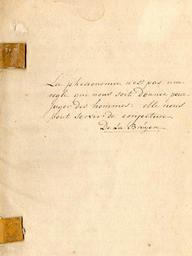 La phisionomie n'est pas une
regle que nous soit donnée pour
juger des hommes: elle nous
peut servir de conjecture.
De La Bruyere